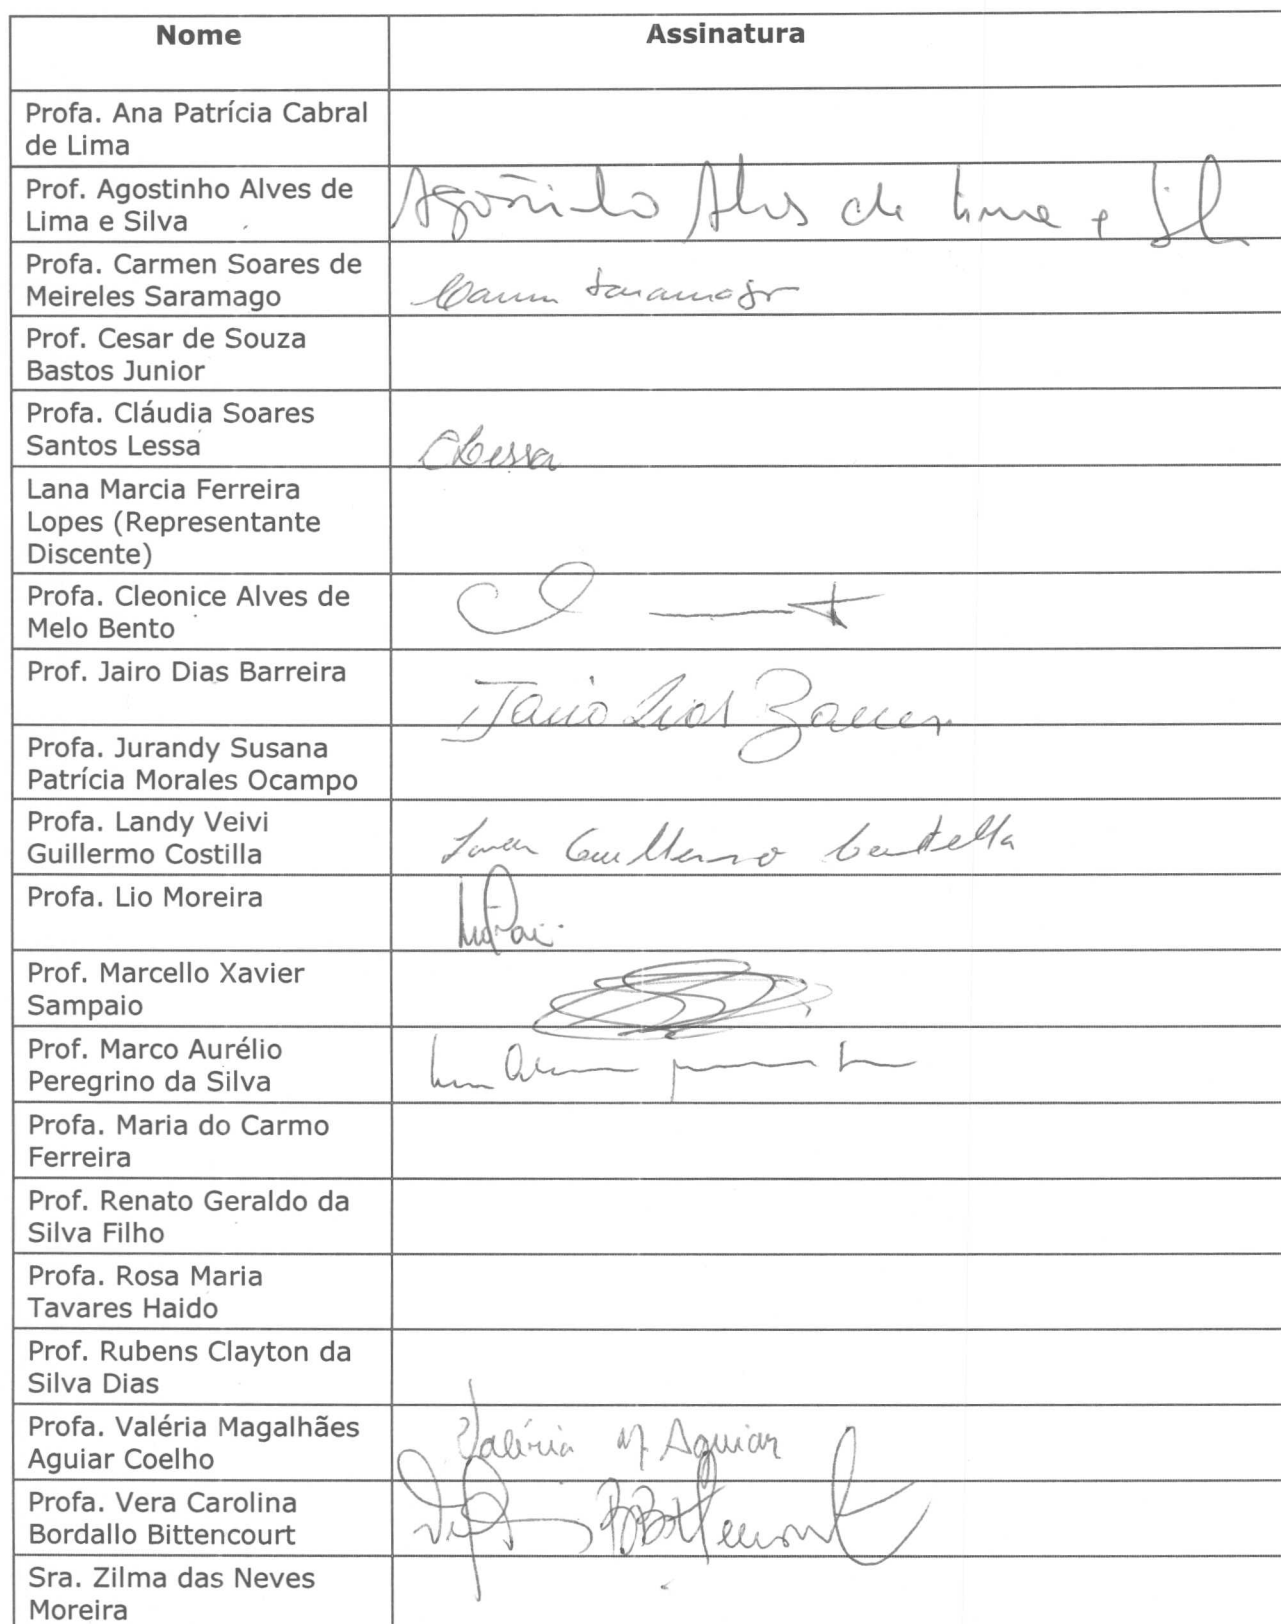 Nome
Assinatura
Profa. Ana Patrícia Cabral
de Lima
Prof. Agostinho Alves de
Lima e Silva
Agostinho Alves de Lima e Sil
Profa. Carmen Soares de
Meireles Saramago
Carmen Saramago
Prof. Cesar de Souza
Bastos Junior
Profa. Cláudia Soares
Santos Lessa
CLessa
Lana Marcia Ferreira
Lopes (Representante
Discente)
Profa. Cleonice Alves de
Melo Bento
Prof. Jairo Dias Barreira
Jairo Dias
Profa. Jurandy Susana
Patrícia Morales Ocampo
Profa. Landy Veivi
Guillermo Costilla
Guillermo Costilla
Profa. Lio Moreira
Prof. Marcello Xavier
Sampaio
Prof. Marco Aurélio
Peregrino da Silva
Profa. Maria do Carmo
Ferreira
Prof. Renato Geraldo da
Silva Filho
Profa. Rosa Maria
Tavares Haido
Prof. Rubens Clayton da
Silva Dias
Profa. Valéria Magalhães
Aguiar Coelho
Valéria M. Aguiar
Profa. Vera Carolina
Bordallo Bittencourt
Sra. Zilma das Neves
Moreira